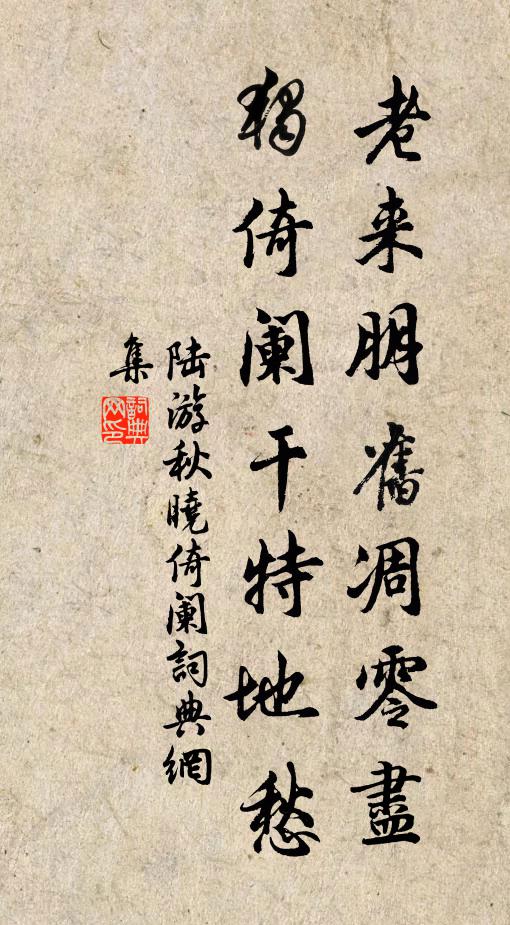 老来朋舊凋零盡
獨倚闌干特地愁
陆游秋曉倚闌詞典網
集
詞典网印